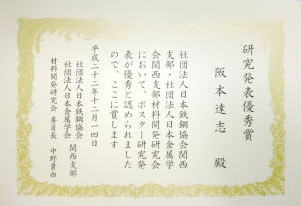 研究発表優秀賞
阪本達志 殿
社団法人日本鉄鋼協会関西
支部・社団法人日本金属学
会関西支部材料開発研究会
において、ポスター研究発
表が優秀と認められました
ので、ここに賞します
平成二十二年十二月一四日
社団法人日本鉄鋼協会
社団法人日本金属学会
関西支部
材料開発研究会 委員長 中野貴由